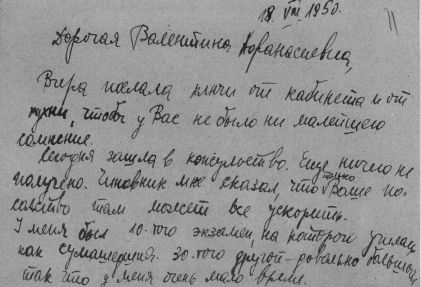 18. VIII. 1950.
11
Дорогая Валентина Афанасиевна,
Вчера послала ключи от кабинета и от
кухни, чтобы у Вас не было ни малейшего
сомнения.
Сегодня зашла в консульство. Еще ничего не
получено. Чиновник мне сказал, что только Ваше по-
сольство там может все ускорить.
У меня был 10-того экзамен, на которого училась
как сумашедшая. 30-того другой - довольно большой
так что у меня очень мало время.